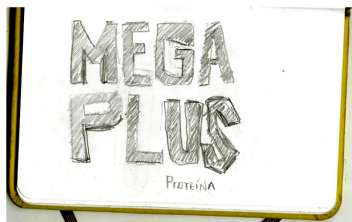 MEGA
PLUS
PROTEÍNA